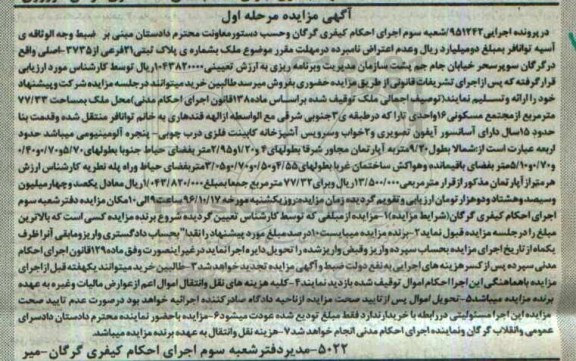 آگهی مزایده مرحله اول
در پرونده اجرایی ۹۵۱۲۴۲/شعبه سوم اجرای احکام کیفری گرگان و حسب دستور معاونت محترم دادستان مبنی بر ضبط وجه الوثاقه ی
آسیه توانافر بمبلغ دو میلیارد ریال وعدم اعتراض نامبرده در مهلت مقرر موضوع ملک بشماره ی پلاک ثبتی ۲۱فرعی از ۳۷۳۵-اصلی واقع
در گرگان سوپر سحر خیابان جام جم پشت سازمان مدیریت وبرنامه ریزی به ارزش تعیینی ۱۰۴۳۸۲۰۰۰۰ریال توسط کارشناس مورد ارزیابی
قرار گرفته که پس از اجرای تشریفات قانونی از طریق مزایده حضوری بفروش میرسد طالبین خرید میتوانند در جلسه مزایده شرکت و پیشنهاد
خود را ارائه و تسلیم نمایند(توصیف اجمالی ملک توقیف شده بر اساس ماده۱۳۸قانون اجرای احکام مدنی)محل ملک بمساحت ۷۷/۳۳
مترمربع از مجتمع مسکونی ۱۶واحدی تارا که در طبقه ی۳جنوبی شرقی مع الواسطه ازالهه قندهاری به خانم توانافر منتقل شده وقدمت بنا
حدود ۱۵سال دارای آسانسور آیفون تصویری و۲خواب وسرویس آشپزخانه کابینت فلزی درب چوبی- پنجره آلومینیومی میباشد حدود
اربعه عبارت است از شمالا بطول ۹/۳۰متربه آپارتمان مجاور شرقا بطولهای۴ و۱/۲۰ و۲/۹۵متر بفضای حیاط جنوبا بطولهای ۵/۷۰و۰/۷۰و۰/۴۰
و۰/۷۰و۵/۱۰متر بفضای باقیمانده وهواکش ساختمان غربا بطولهای۴/۵۵و۰/۵۰و۰/۷۰و۳/۰۵متر بفضای حیاط وراه پله نظریه کارشناس ارزش
هر متر از آپارتمان مذکور از قرار متر مربعی ۱۳/۵۰۰/۰۰۰ریال وبرای ۷۷/۳۲متر مربع جمعا بمبلغ۱/۰۴۳/۸۲۰/۰۰۰ریال معادل یکصد وچهار میلیون
وسیصد وهشتاد ودو هزار تومان ارزیابی و تقویم گردیده زمان مزایده:روز یکشنبه مورخه ۹۶/۱۰/۱۷ ساعت۹الی۱۰مکان مزایده دفتر شعبه سوم
اجرای احکام کیفری گرگان(شرایط مزایده)۱-مزایده از مبلغی که توسط کارشناس تعیین گردیده شروع برنده مزایده کسی است که بالاترین
مبلغ را در جلسه مزایده قبول نماید ۲-برنده مزایده میبایست ۱۰درصد مبلغ مورد پیشنهاد را نقدا" بحساب دادگستری واریز ومابقی آنرا ظرف
یکماه از تاریخ اجرای مزایده بحساب سپرده واریز وقبض واریز شده را تحویل دایره اجرا نماید در غیر اینصورت وفق ماده۱۲۹قانون اجرای احکام
مدنی سپرده پس از کسر هزینه های اجرایی به نفع دولت ضبط و آگهی مزایده تجدید خواهد شد۳-طالبین خرید میتوانند یکهفته قبل از اجرای
مزایده باهماهنگی این اجرا احکام اموال توقیف شده بازدید نمایند۴-کلیه هزینه های نقل وانتقال اموال اعم از عوارض مالیات وغیره به عهده
برنده مزایده میباشد۵-تحویل اموال پس از تایید صحت مزایده از ناحیه دادگاه صادر کننده اجرائیه خواهد بود در صورت عدم تایید صحت
مزایده این اجرا مسئولیتی در رابطه با خریدار ندارد فقط مبلغ تودیع شده عودت میشود۶-مزایده با حضور نماینده محترم دادستان دادسرای
عمومی وانقلاب گرگان ونماینده اجرای احکام مدنی انجام خواهد شد۷-هزینه نقل وانتقال به عهده برنده مزایده میباشد.
۵۰۲۲-مدیر دفتر شعبه سوم اجرای احکام کیفری گرگان-میر